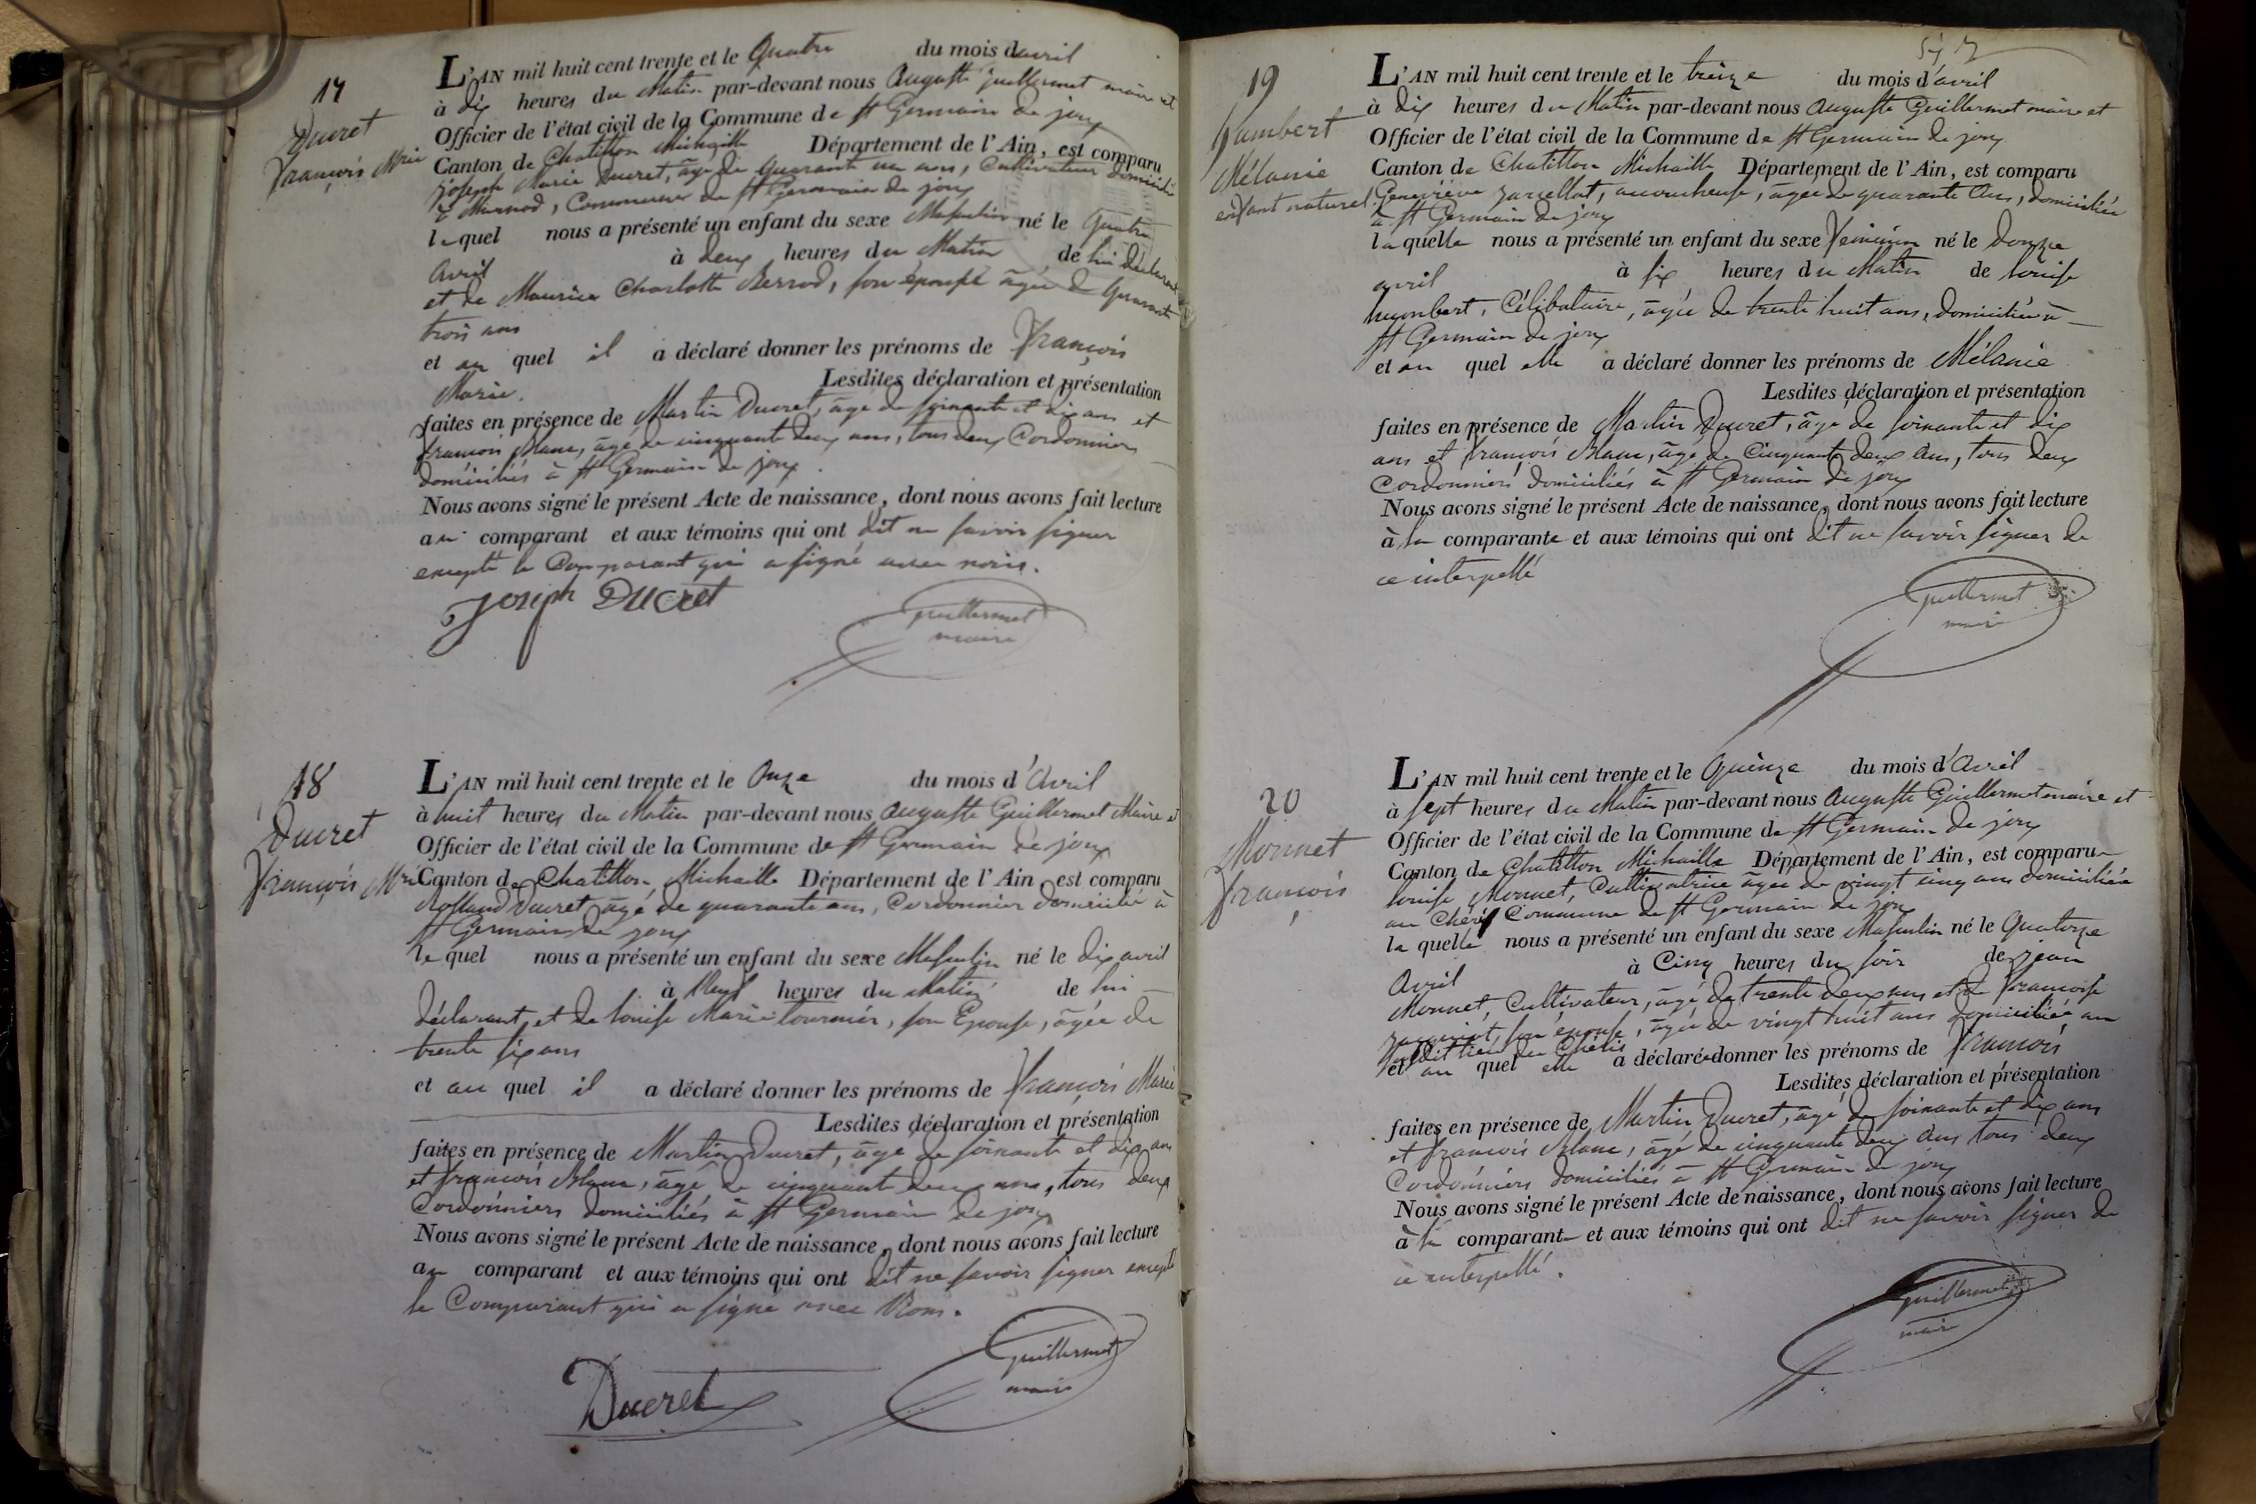 17
Ducret
François Mrie
L'AN mil huit cent trente et le Quatre du mois d'avril
à dix heures du Matin par-devant nous Auguste Guillermet maire et
Officier de l'état civil de la Commune de St Germain de joux
Canton de Chatillon Michaille Département de l'Ain, est comparu
joseph Marie Ducret, âgé de quarante un ans, Cultivateur domicilié
à Marnod, Commune de St Germain de joux
lequel nous a présenté un enfant du sexe Masculin né le Quatre
avril à deux heures du Matin de lui déclarant
et de Maurice Charlotte Berrod, son épouse âgée de quarante
trois ans
et au quel il a déclaré donner les prénoms de François
Marie. Lesdites déclaration et présentation
faites en présence de Martin Ducret, âgé de soixante et dix ans et
françois Blanc, âgé de cinquante deux ans, tous deux Cordonniers
domiciliés à St Germain de joux.
Nous avons signé le présent Acte de naissance, dont nous avons fait lecture
au comparant et aux témoins qui ont dit ne savoir signer
excepté le Comparant qui a signé avec nous.
Joseph DUCret
Guillermet
maire
18
Ducret
François Mrie
L'AN mil huit cent trente et le Onze du mois d'Avril
à huit heures du Matin par-devant nous Auguste Guillermet Maire et
Officier de l'état civil de la Commune de St Germain de joux
Canton de Chatillon Michaille Département de l'Ain est comparu
Rolland Ducret âgé de quarante ans, Cordonnier domicilié à
St Germain de joux
le quel nous a présenté un enfant du sexe Masculin né le dix avril
à Neuf heures du Matin de lui
déclarant et de louise Marie tournier, son Epouse, âgée de
trente six ans
et au quel il a déclaré donner les prénoms de François Marie
Lesdites déclaration et présentation
faites en présence de Martin Ducret, âgé de soixante et dix ans
et françois Blanc, âgé de cinquante deux ans, tous deux
Cordonniers domiciliés à St Germain de joux
Nous avons signé le présent Acte de naissance, dont nous avons fait lecture
au comparant et aux témoins qui ont dit ne savoir signer excepté
le Comparant qui a signé avec Nous.
Ducret
Guillermet
maire
19
Mélanie
enfant naturel
L'AN mil huit cent trente et le treize du mois d'avril
à dix heures du Matin par-devant nous Auguste Guillermet maire et
Officier de l'état civil de la Commune de St Germain de joux
Canton de Chatillon Michaille Département de l'Ain, est comparu
Geneviève accoucheuse, âgée de quarante Ans, domiciliée
à St Germain de joux
la quelle nous a présenté un enfant du sexe Feminin né le Douze
avril à six heures du Matin de louise
Célibataire, âgée de trente huit ans, domiciliée à
St Germain de joux
et au quel elle a déclaré donner les prénoms de Mélanie
Lesdites déclaration et présentation
faites en présence de Martin Ducret, âgé de soixante et dix
ans et françois Blanc, âgé de Cinquante deux Ans, tous deux
Cordonniers domiciliés à St Germain de joux
Nous avons signé le présent Acte de naissance, dont nous avons fait lecture
à la comparante et aux témoins qui ont dit ne savoir signer de
ce interpellé
Guillermet
maire
20
Monnet
françois
L'AN mil huit cent trente et le Quinze du mois d'Avril
à sept heures du Matin par-devant nous Auguste Guillermet maire et
Officier de l'état civil de la Commune de St Germain de joux
Canton de Chatillon Michaille Département de l'Ain, est comparu
louise Monnet, Cultivatrice âgée de vingt cinq ans domiciliée
au Commune de St Germain de joux
la quelle nous a présenté un enfant du sexe Masculin né le Quatorze
Avril à Cinq heures du soir de jean
Monnet, Cultivateur, âgé de trente deux ans et de Françoise
son épouse, âgée de vingt huit ans domiciliée au
et au quel elle a déclaré donner les prénoms de François
Lesdites déclaration et présentation
faites en présence de Martin Ducret, âgé de soixante et dix ans
et françois Blanc, âgé de cinquante deux Ans tous deux
Cordonniers domiciliés à St Germain de joux
Nous avons signé le présent Acte de naissance, dont nous avons fait lecture
à la comparant et aux témoins qui ont dit ne savoir signer de
ce interpellé.
Guillermet
maire